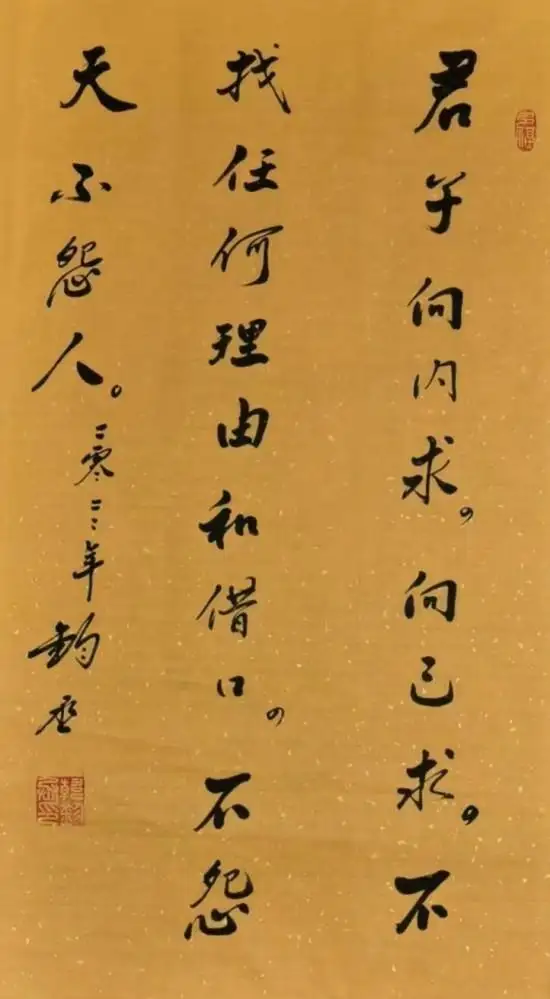 君子向内求，向己求，不
找任何理由和借口，不怨
天不怨人。
二零二二年钧